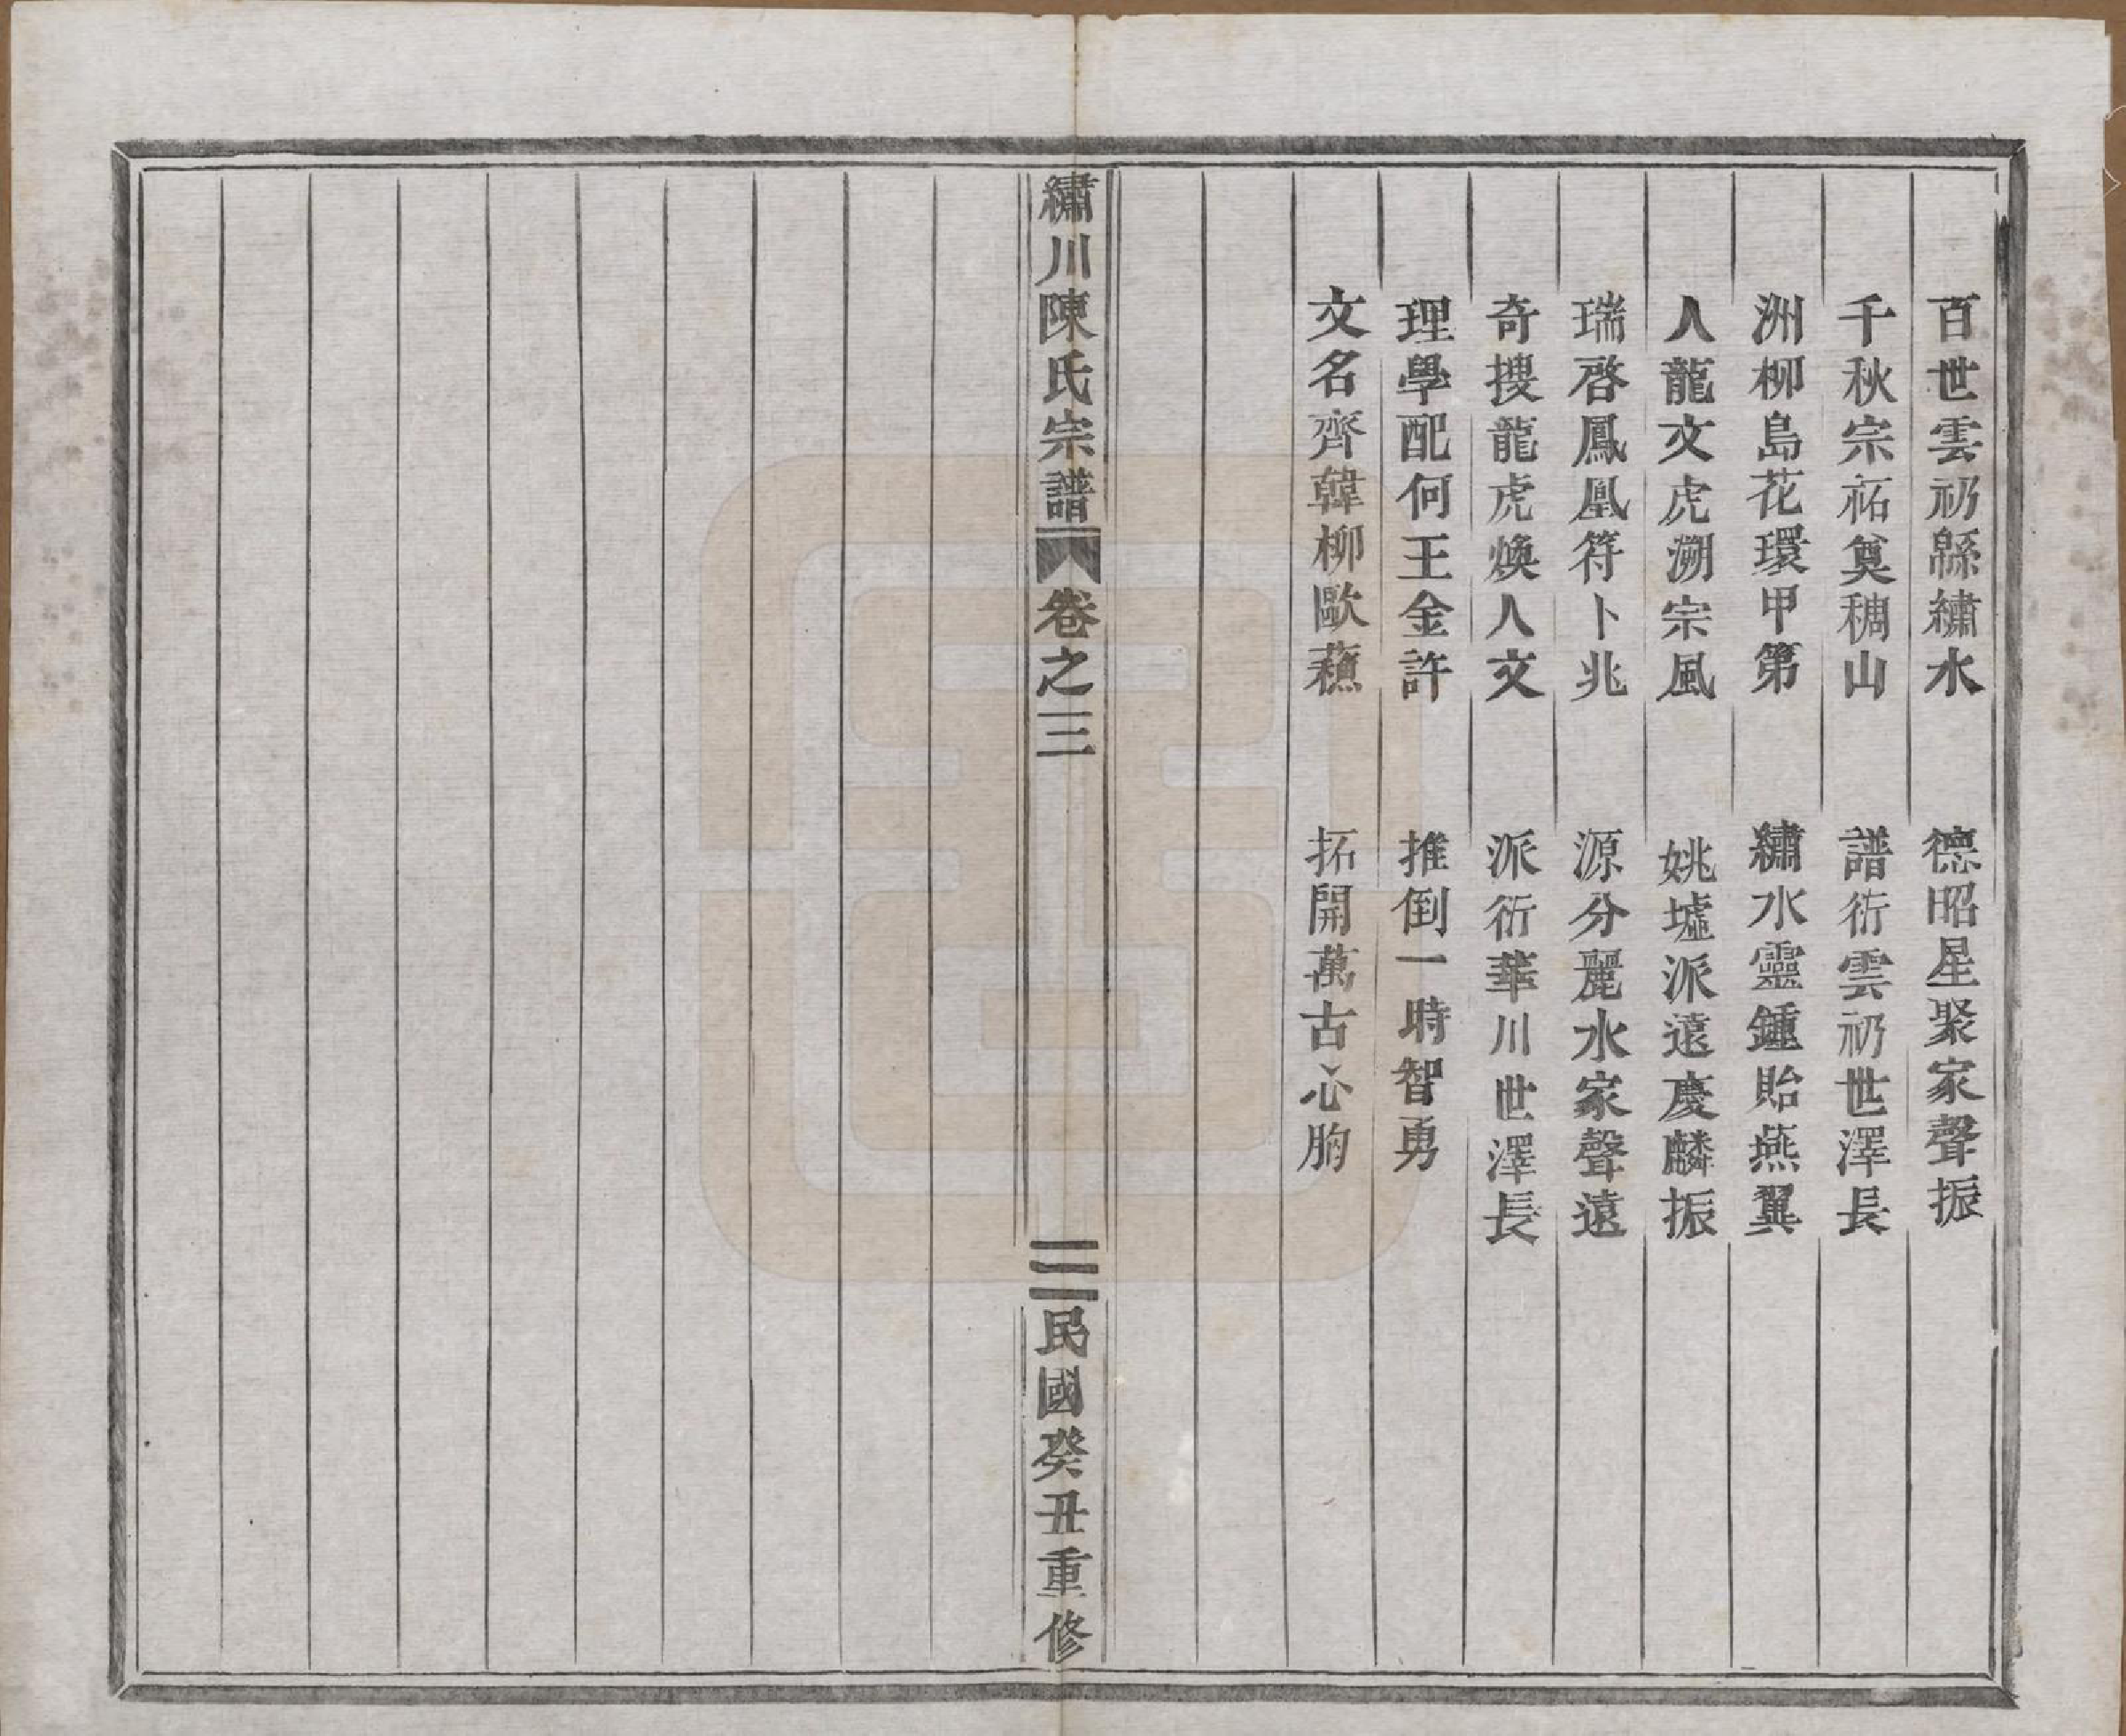 百世雲礽緜繡水　德昭星聚家聲振
千秋宗祏奠稠山　譜衍雲礽世澤長
洲柳島花環甲第　繡水靈鍾貽燕翼
人龍文虎溯宗風　姚墟派遠慶麟振
瑞啓鳳凰符卜兆　源分麗水家聲遠
奇搜龍虎煥人文　派衍華川世澤長
理學配何王金許　推倒一時智勇
文名齊韓柳歐蘓　拓開萬古心胸
繡川陳氏宗譜　卷之三　三　民國癸丑重修